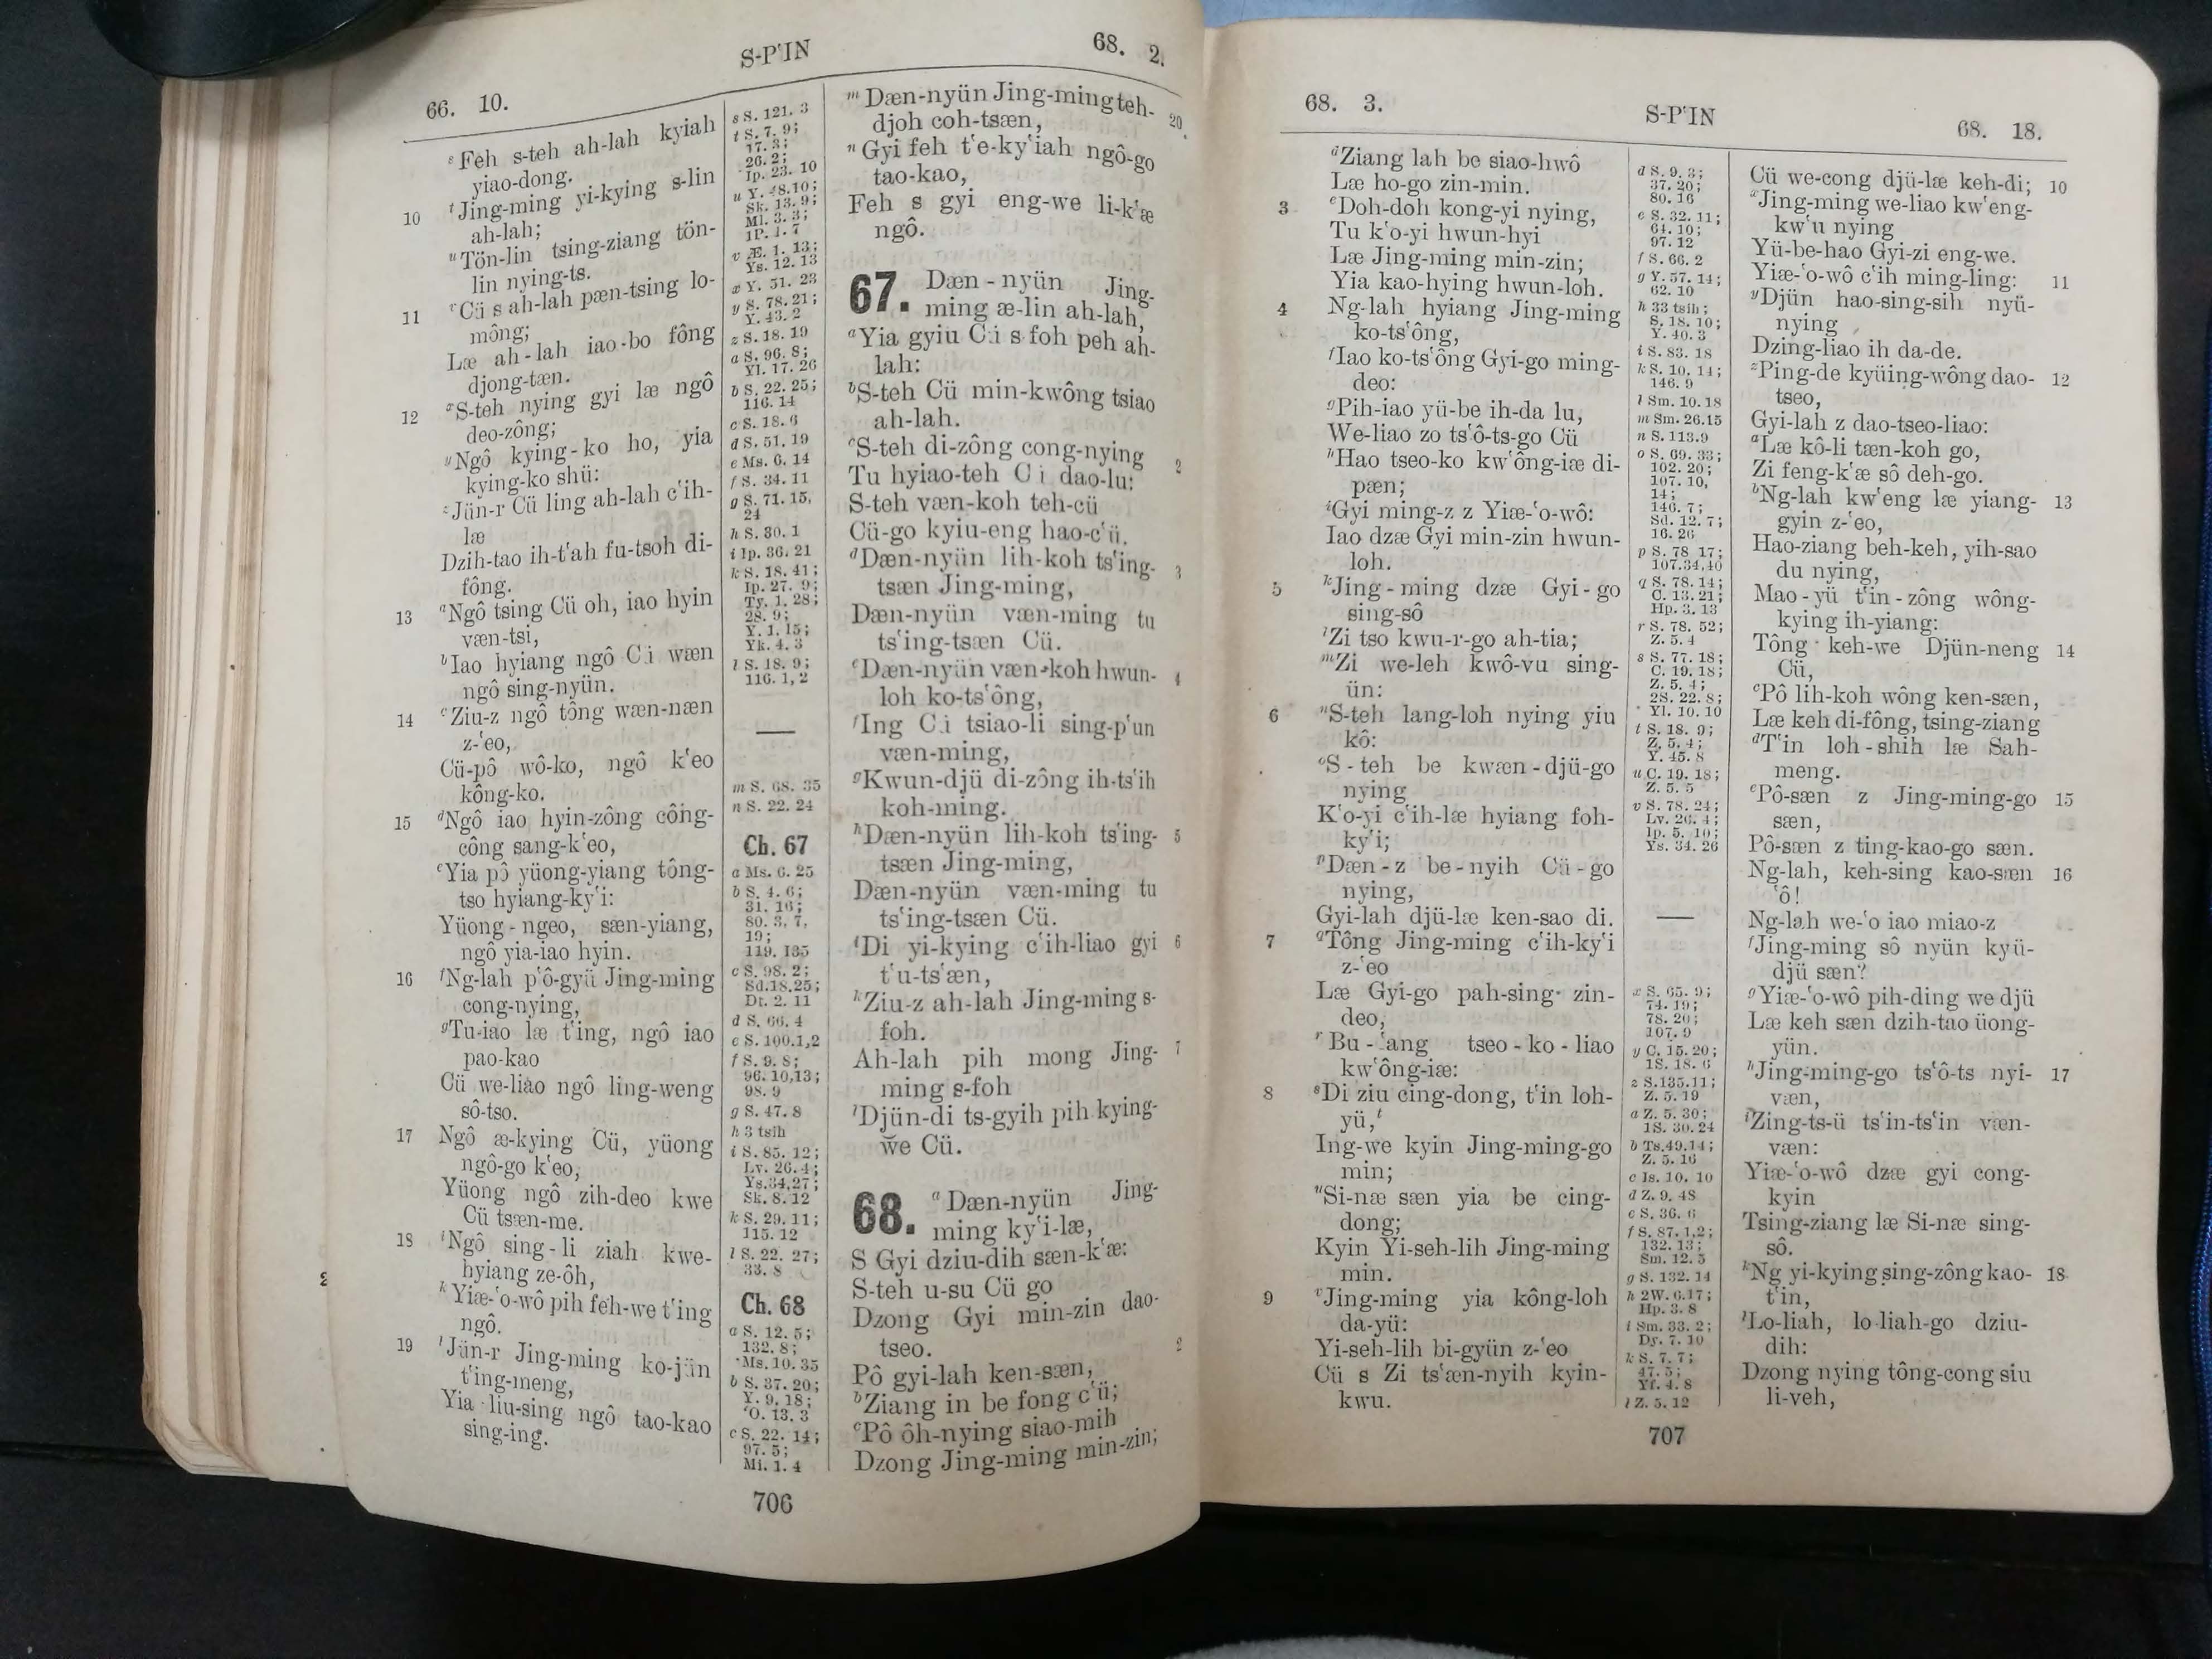 66. 10.
S-P‘IN
68. 2.
ˢFeh s-teh ah-lah kyiah
yiao-dong.
10 ᵗJing-ming yi-kying s-lin
ah-lah;
ᵘTön-lin tsing-ziang tön-
lin nying-ts.
11 ᵛCü s ah-lah pæn-tsing lo-
mông;
Læ ah-lah iao-bo fông
djong-tæn.
12 ˣS-teh nying gyi læ ngô
deo-zông;
ʸNgô kying-ko ho, yia
kying-ko shü:
ᶻJün-r Cü ling ah-lah c‘ih-
læ
Dzih-tao ih-t‘ah fu-tsoh di-
fông.
13 ᵃNgô tsing Cü oh, iao hyin
væn-tsi,
ᵇIao hyiang ngô Cü wæn
ngô sing-nyün.
14 ᶜZiu-z ngô tông wæn-næn
z-‘eo,
Cü-pô wô-ko, ngô k‘eo
kông-ko.
15 ᵈNgô iao hyin-zông công-
công sang-k‘eo,
ᵉYia pô yüong-yiang tông-
tso hyiang-ky‘i:
Yüong-ngeo, sæn-yiang,
ngô yia-iao hyin.
16 ᶠNg-lah p‘ô-gyü Jing-ming
cong-nying,
ᵍTu-iao læ t‘ing, ngô iao
pao-kao
Cü we-liao ngô ling-weng
sô-tso.
17 Ngô æ-kying Cü, yüong
ngô-go k‘eo,
Yüong ngô zih-deo kwe
Cü tsæn-me.
18 ⁱNgô sing-li ziah kwe-
hyiang ze-ôh,
ᵏYiæ-‘o-wô pih feh-we t‘ing
ngô.
19 ˡJün-r Jing-ming ko-jün
t‘ing-meng,
Yia liu-sing ngô tao-kao
sing-ing.
s S. 121. 3
t S. 7. 9;
17. 3;
26. 2;
Ip. 23. 10
u Y. 48.10;
Sk. 13. 9;
Ml. 3. 3;
1P. 1. 7
v Æ. 1. 13;
Ys. 12. 13
x Y. 51. 23
y S. 78. 21;
Y. 43. 2
z S. 18. 19
a S. 96. 8;
Yl. 17. 26
b S. 22. 25;
116. 14
c S. 18. 6
d S. 51. 19
e Ms. 6. 14
f S. 34. 11
g S. 71. 15,
24
h S. 30. 1
i Ip. 36. 21
k S. 18. 41;
Ip. 27. 9;
Ty. 1. 28;
28. 9;
Y. 1. 15;
Yk. 4. 3
l S. 18. 9;
116. 1, 2
m S. 68. 35
n S. 22. 24
Ch. 67
a Ms. 6. 25
b S. 4. 6;
31. 16;
80. 3, 7,
19;
119. 135
c S. 98. 2;
Sd.18.25;
Dt. 2. 11
d S. 66. 4
e S. 100.1,2
f S. 9. 8;
96. 10,13;
98. 9
g S. 47. 8
h 3 tsih
i S. 85. 12;
Lv. 26. 4;
Ys.34,27;
Sk. 8. 12
k S. 29. 11;
115. 12
l S. 22. 27;
33. 8
Ch. 68
a S. 12. 5;
132. 8;
Ms. 10. 35
b S. 37. 20;
Y. 9. 18;
‘O. 13. 3
c S. 22. 14;
97. 5;
Mi. 1. 4
ᵐDæn-nyün Jing-ming teh- 20
djoh coh-tsæn,
ⁿGyi feh t‘e-ky‘iah ngô-go
tao-kao,
Feh s gyi eng-we li-k‘æ
ngô.
67. Dæn-nyün Jing-
ming æ-lin ah-lah,
ᵃYia gyiu Cü s foh peh ah-
lah:
ᵇS-teh Cü min-kwông tsiao
ah-lah.
ᶜS-teh di-zông cong-nying 2
Tu hyiao-teh Cü dao-lu:
S-teh væn-koh teh-cü
Cü-go kyiu-eng hao-c‘ü.
ᵈDæn-nyün lih-koh ts‘ing- 3
tsæn Jing-ming,
Dæn-nyün væn-ming tu
ts‘ing-tsæn Cü.
ᵉDæn-nyün væn-koh hwun- 4
loh ko-ts‘ông,
ᶠIng Cü tsiao-li sing-p‘un
væn-ming,
ᵍKwun-djü di-zông ih-ts‘ih
koh-ming.
ʰDæn-nyün lih-koh ts‘ing- 5
tsæn Jing-ming,
Dæn-nyün væn-ming tu
ts‘ing-tsæn Cü.
ⁱDi yi-kying c‘ih-liao gyi 6
t‘u-ts‘æn,
ᵏZiu-z ah-lah Jing-ming s-
foh.
Ah-lah pih mong Jing- 7
ming s-foh
ˡDjün-di ts-gyih pih kying-
we Cü.
68. ᵃDæn-nyün Jing-
ming ky‘i-læ,
S Gyi dziu-dih sæn-k‘æ:
S-teh u-su Cü go
Dzong Gyi min-zin dao-
tseo.
Pô gyi-lah ken-sæn, 2
ᵇZiang in be fong c‘ü;
ᶜPô ôh-nying siao-mih
Dzong Jing-ming min-zin;
706
68. 3.
S-P‘IN
68. 18.
ᵈZiang lah be siao-hwô
Læ ho-go zin-min.
3 ᵉDoh-doh kong-yi nying,
Tu k‘o-yi hwun-hyi
Læ Jing-ming min-zin;
Yia kao-hying hwun-loh.
4 Ng-lah hyiang Jing-ming
ko-ts‘ông,
ᶠIao ko-ts‘ông Gyi-go ming-
deo:
ᵍPih-iao yü-be ih-da lu,
We-liao zo ts‘ô-ts-go Cü
ʰHao tseo-ko kw‘ông-iæ di-
pæn;
ⁱGyi ming-z z Yiæ-‘o-wô:
Iao dzæ Gyi min-zin hwun-
loh.
5 ᵏJing-ming dzæ Gyi-go
sing-sô
ˡZi tso kwu-r-go ah-tia;
ᵐZi we-leh kwô-vu sing-
ün:
6 ⁿS-teh lang-loh nying yiu
kô:
ᵒS-teh be kwæn-djü-go
nying
K‘o-yi c‘ih-læ hyiang foh-
ky‘i;
ᵖDæn-z be-nyih Cü-go
nying,
Gyi-lah djü-læ ken-sao di.
7 ᑫTông Jing-ming c‘ih-ky‘i
z-‘eo
Læ Gyi-go pah-sing zin-
deo,
ʳBu-‘ang tseo-ko-liao
kw‘ông-iæ:
8 ˢDi ziu cing-dong, t‘in loh-
yü,ᵗ
Ing-we kyin Jing-ming-go
min;
ᵘSi-næ sæn yia be cing-
dong;
Kyin Yi-seh-lih Jing-ming
min.
9 ᵛJing-ming yia kông-loh
da-yü:
Yi-seh-lih bi-gyün z-‘eo
Cü s Zi ts‘æn-nyih kyin-
kwu.
d S. 9. 3;
37. 20;
80. 16
e S. 32. 11;
64. 10;
97. 12
f S. 66. 2
g Y. 57. 14;
62. 10
h 33 tsih;
S. 18. 10;
Y. 40. 3
i S. 83. 18
k S. 10. 14;
146. 9
l Sm. 10. 18
m Sm. 26.15
n S. 113.9
o S. 69. 33;
102. 20;
107. 10,
14;
146. 7;
Sd. 12. 7;
16. 26
p S. 78 17;
107.34,40
q S. 78. 14;
C. 13. 21;
Hp. 3. 13
r S. 78. 52;
Z. 5. 4
s S. 77. 18;
C. 19. 18;
Z. 5. 4;
2S. 22. 8;
Yl. 10. 10
t S. 18. 9;
Z. 5. 4;
Y. 45. 8
u C. 19. 18;
Z. 5. 5
v S. 78. 24;
Lv. 26. 4;
Ip. 5. 10;
Ys. 34. 26
x S. 65. 9;
74. 19;
78. 20;
107. 9
y C. 15. 20;
1S. 18. 6
z S.135.11;
Z. 5. 19
a Z. 5. 30;
1S. 30. 24
b Ts.49.14;
Z. 5. 16
c Is. 10. 10
d Z. 9. 48
e S. 36. 6
f S. 87. 1,2;
132. 13;
Sm. 12. 5
g S. 132. 14
h 2W. 6.17;
Hp. 3. 8
i Sm. 33. 2;
Dy. 7. 10
k S. 7. 7;
47. 5;
Yf. 4. 8
l Z. 5. 12
Cü we-cong djü-læ keh-di; 10
ˣJing-ming we-liao kw‘eng-
kw‘u nying
Yü-be-hao Gyi-zi eng-we.
Yiæ-‘o-wô c‘ih ming-ling: 11
ʸDjün hao-sing-sih nyü-
nying
Dzing-liao ih da-de.
ᶻPing-de kyüing-wông dao- 12
tseo,
Gyi-lah z dao-tseo-liao:
ᵃLæ kô-li tæn-koh go,
Zi feng-k‘æ sô deh-go.
ᵇNg-lah kw‘eng læ yiang- 13
gyin z-‘eo,
Hao-ziang beh-keh, yih-sao
du nying,
Mao-yü t‘in-zông wông-
kying ih-yiang:
Tông keh-we Djün-neng 14
Cü,
ᶜPô lih-koh wông ken-sæn,
Læ keh di-fông, tsing-ziang
ᵈT‘in loh-shih læ Sah-
meng.
ᵉPô-sæn z Jing-ming-go 15
sæn,
Pô-sæn z ting-kao-go sæn.
Ng-lah, keh-sing kao-sæn 16
‘ô!
Ng-lah we-‘o iao miao-z
ᶠJing-ming sô nyün kyü-
djü sæn?
ᵍYiæ-‘o-wô pih-ding we djü
Læ keh sæn dzih-tao üong-
yün.
ʰJing-ming-go ts‘ô-ts nyi- 17
væn,
ⁱZing-ts-ü ts‘in-ts‘in væn-
væn:
Yiæ-‘o-wô dzæ gyi cong-
kyin
Tsing-ziang læ Si-næ sing-
sô.
ᵏNg yi-kying sing-zông kao- 18
t‘in,
ˡLo-liah, lo-liah-go dziu-
dih:
Dzong nying tông-cong siu
li-veh,
707